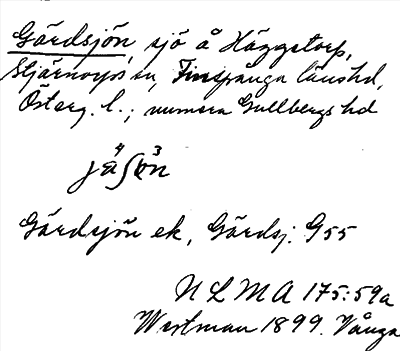 Gärdsjön, sjö å Häggetorp,
Stjärnorps sn, Finspånga länshd,
Österg. l.; numera Gullbergs hd
4 3
jäſön
Gärdsjön ek, Gärdsj. G55
NLMA 175:59a
Westman 1899. Vånga